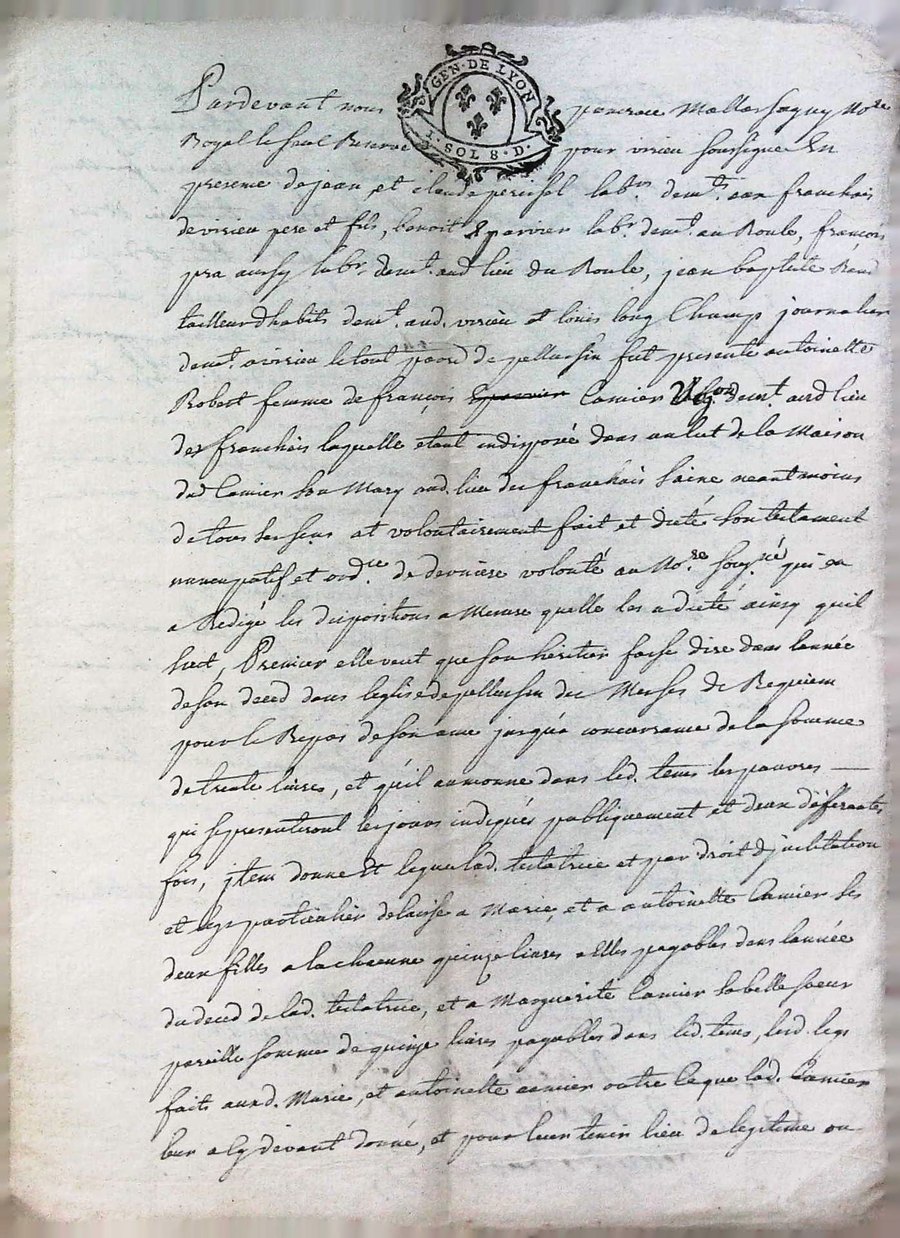 GEN · DE LYON
1 · SOL 8 · D ·
Pardevant nous pancrace Mallassagny No.re
Royal le seul Reservé pour virieu soussigné En
presence de jean et claude perichel lab.rs dem.ts aux franchais
de virieu pere et fils, benoit parvier lab.r dem.t au Roule, françois
pra aussy lab.r dem.t aud lieu du Roule, jean baptiste
tailleur d'habits dem.t aud. virieu et louis long Champ journalier
dem.t a virieu le tout parr.e de pellussin fut presente antoinette
Robert femme de françois Camier dem.t aud lieu
des franchais laquelle etant indisposée dans un lict de la Maison
dud Camier son Mary aud. lieu des franchais saine neantmoins
de tous ses sens at volontairement fait et dicté son testament
nuncupatif et ord.ce de derniere volonté au No.re sousg.né qui en
a Redigé les dispositions a Mesure quelle les a dicté ainsy quil
suit, Premier elle veut que son héritier fasse dire dans lannée
de son deced dans leglise de pellussin des Messes de Requiem
pour le Repos de son ame jusqu'a concurrance de la somme
de trente livres, et qu'il aumonne dans led. tems les pauvres —
qui se presenteront les jours indiqués publiquement et deux differantes
fois, jtem donne et legue lad. testatrice et par droit d'jnstitution
et legs particulier delaisse a Marie, et a antoinette Camier ses
deux filles a la chacune quinze livres a elles payables dans lannée
du deced de lad. testatrice, et a Marguerite Camier sa belle soeur
pareille somme de quinze livres payables dans led. tems, lesd. legs
faits auxd. Marie, et antoinette camier outre ce que lad. Camier
leur a cy devant donné, et pour leur tenir lieu de legitime ou